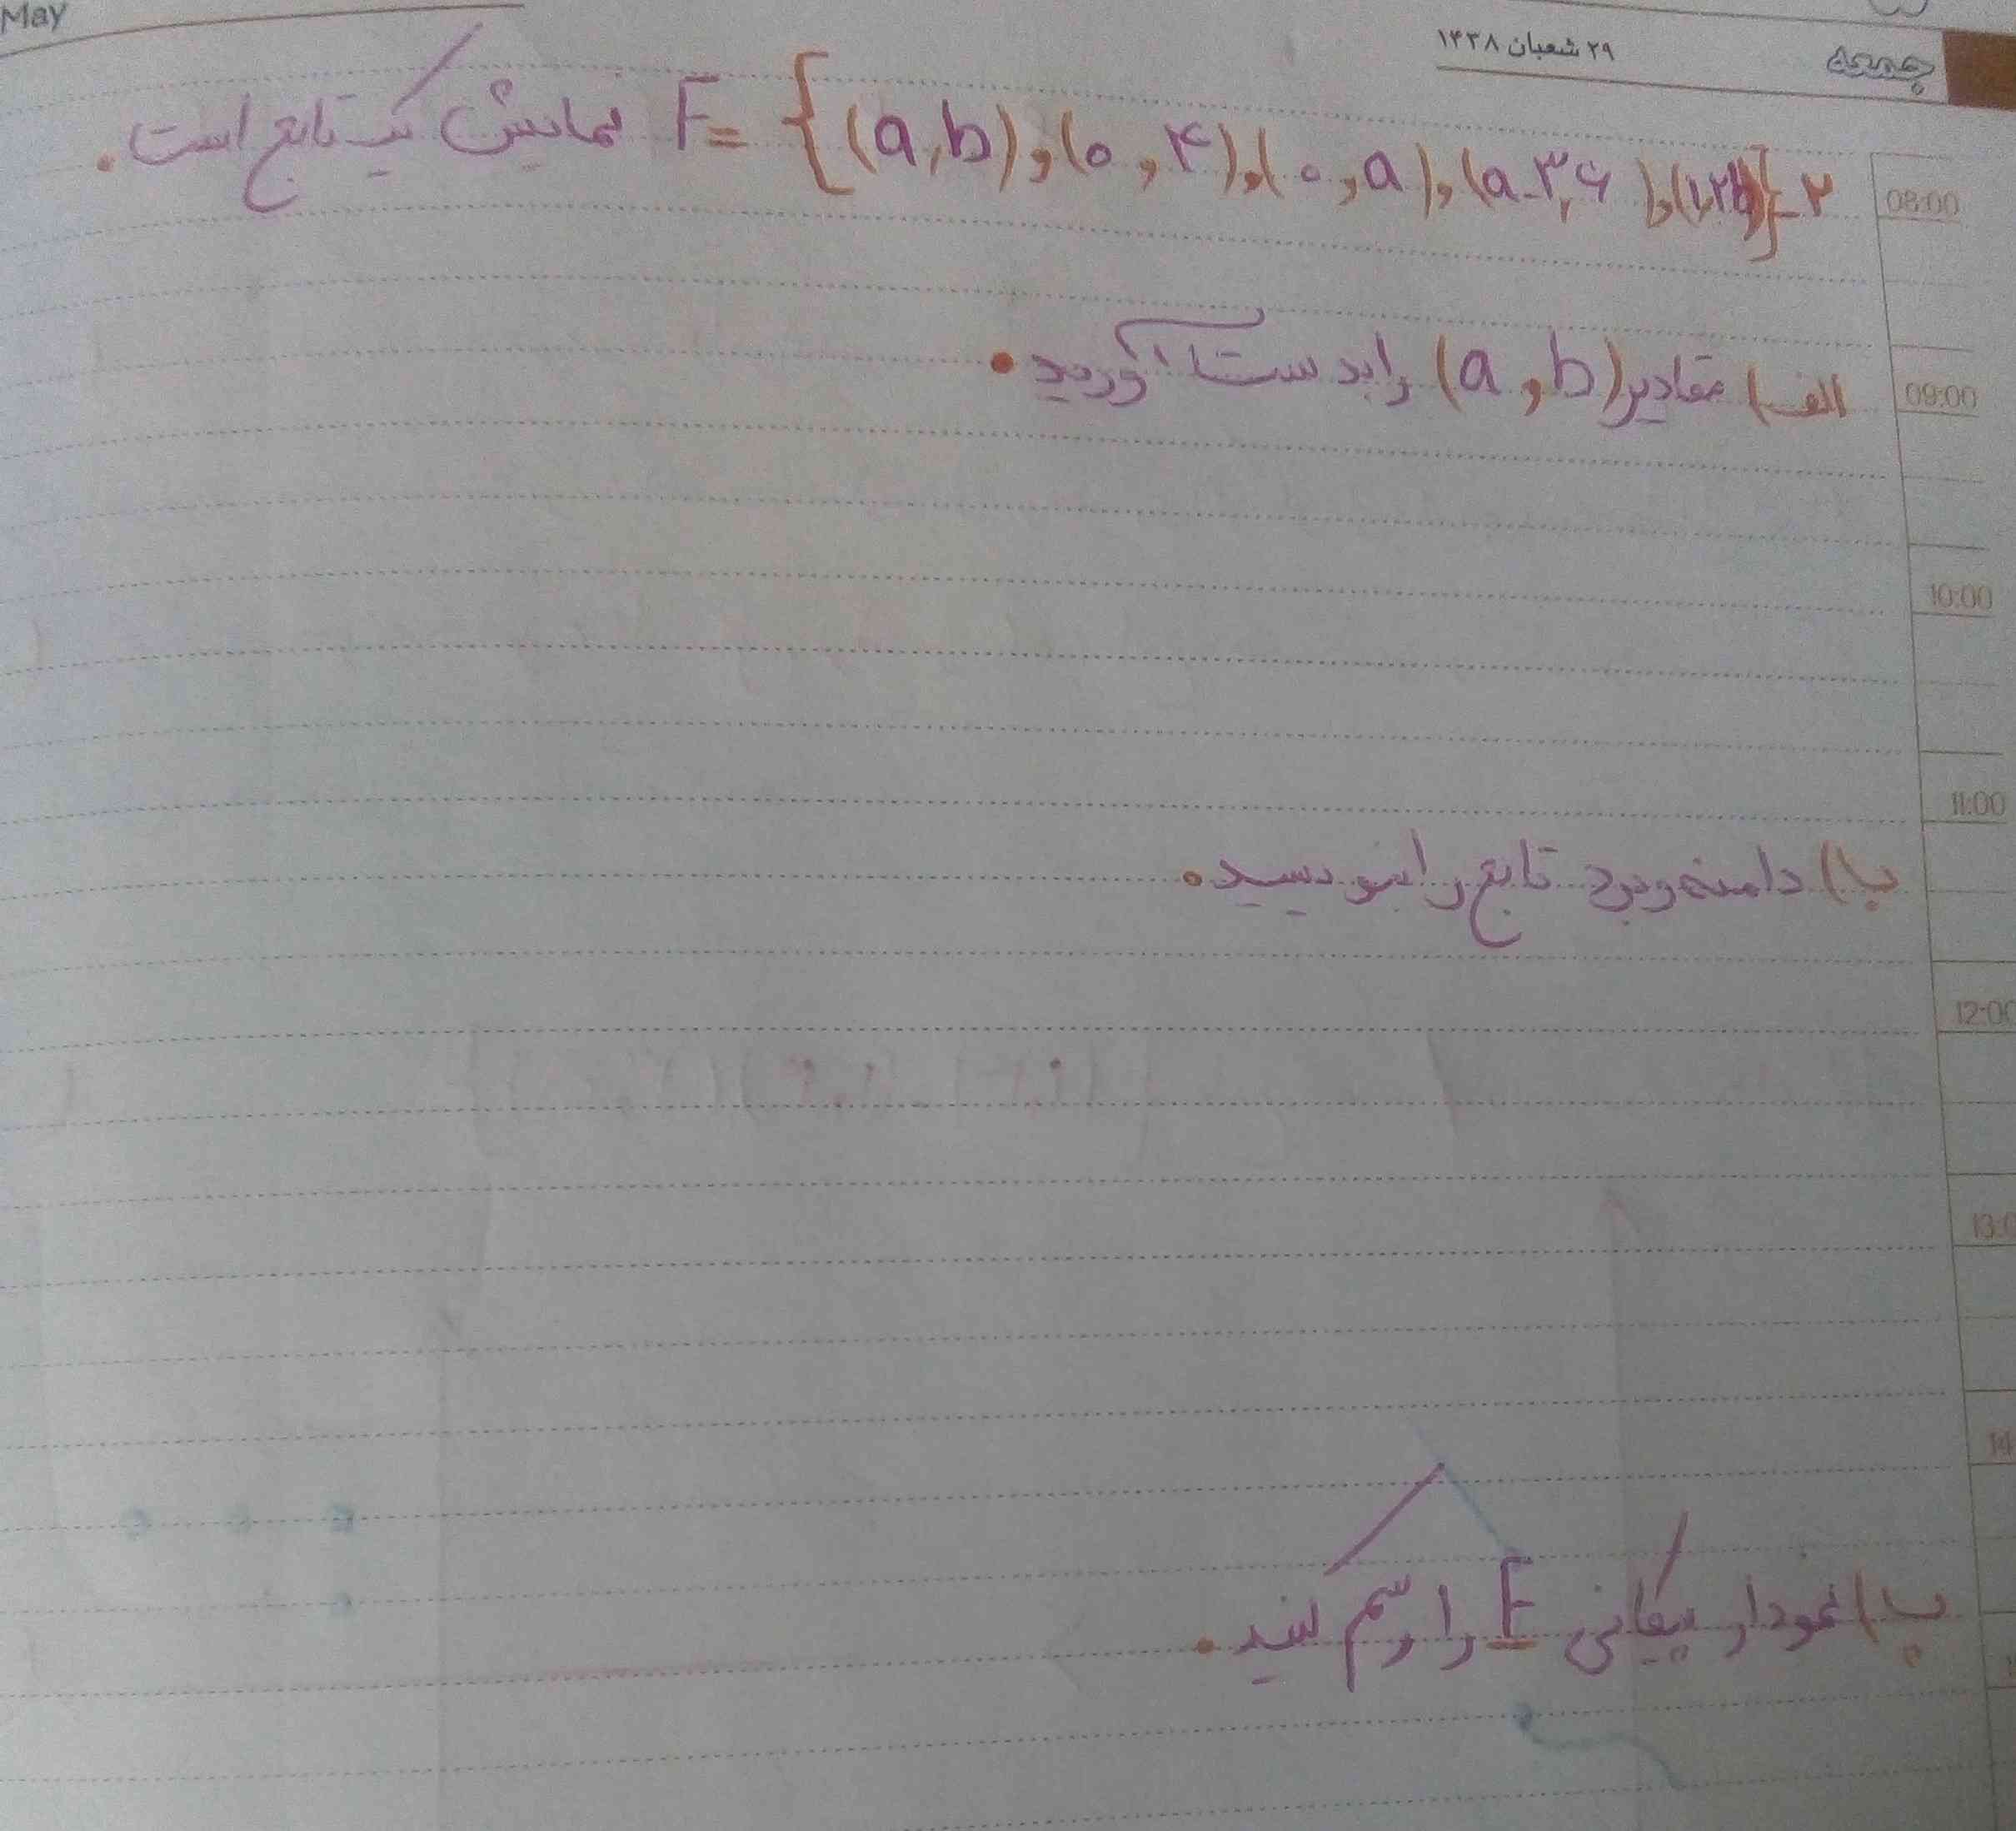 May
جمعه
۲۹ شعبان ۱۴۳۸
۲_ F= {(a,b),(۰,۴),(۰,a),(a-۳,۶),(۱,۲b)} نمایش یک تابع است.
08:00
الف) مقادیر (a,b) را بدست آورید.
09:00
10:00
11:00
ب) دامنه و برد تابع را بنویسید.
12:00
13:0
14
پ) نمودار پیکانی F را رسم کنید.